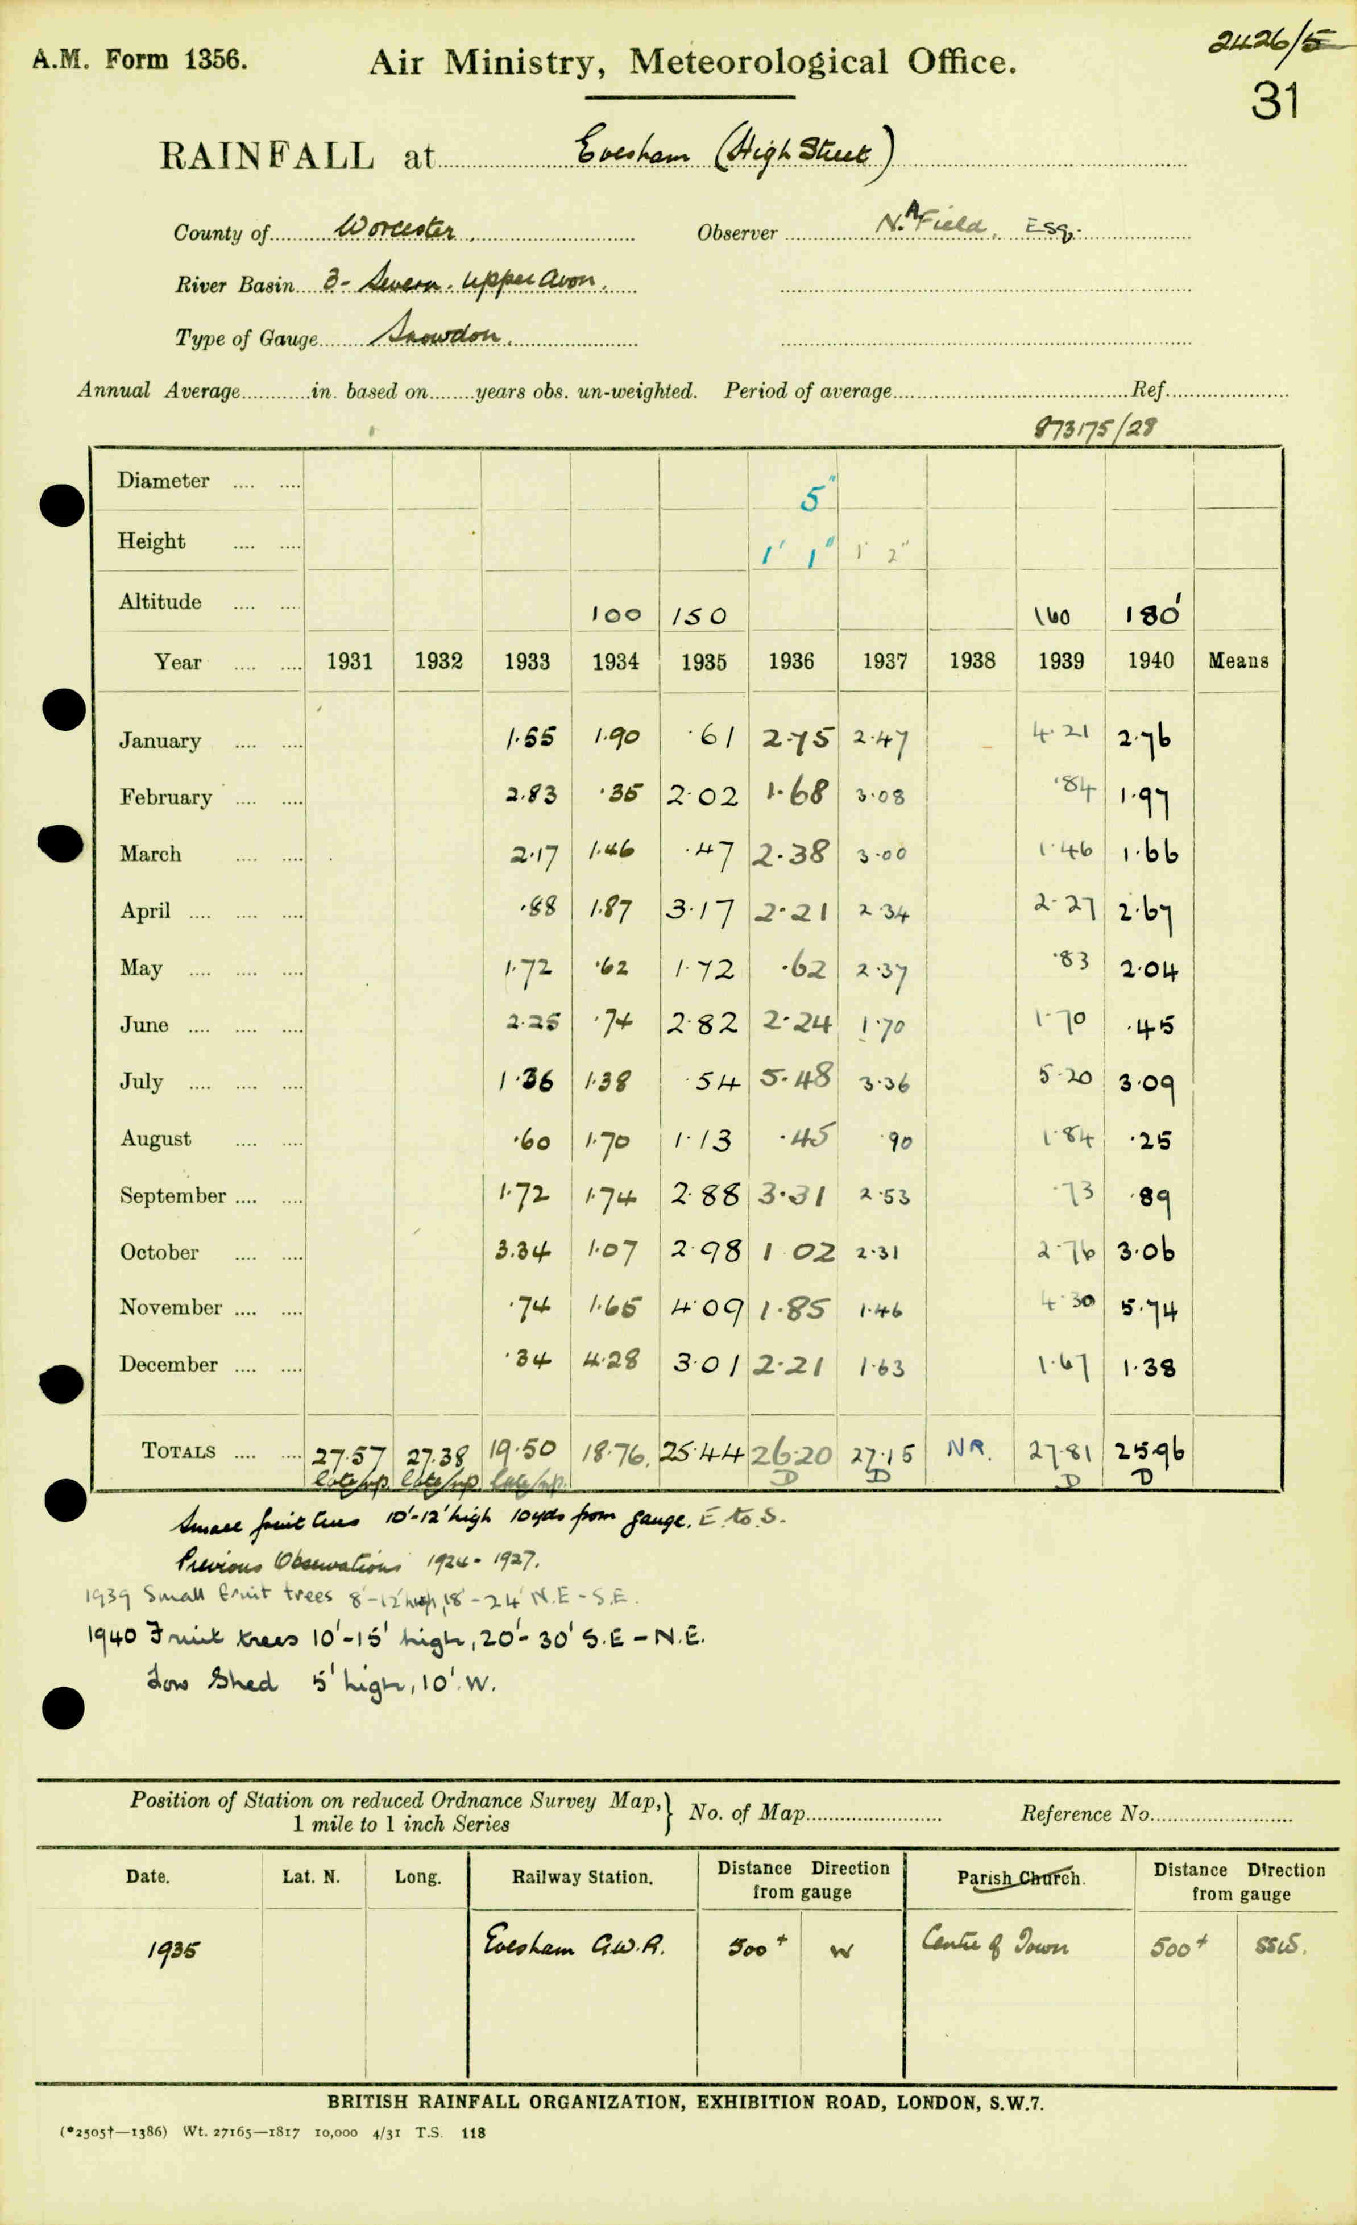 2426/5
A.M. Form 1356. Air Ministry, Meteorological Office.
31
RAINFALL at Evesham (High Street)
County of Worcester. Observer N.A Field, Esq.
River Basin 3- Severn. Upper Avon.
Type of Gauge Snowdon.
Annual Average in. based on years obs. un-weighted. Period of average Ref.
873175/28
Diameter 5"
Height 1' 1" 1' 2"
Altitude 100 150 160 180'
Year 1931 1932 1933 1934 1935 1936 1937 1938 1939 1940 Means
January 1.55 1.90 .61 2.75 2.47 4.21 2.76
February 2.83 .35 2.02 1.68 3.08 .84 1.97
March 2.17 1.46 .47 2.38 3.00 1.46 1.66
April .88 1.87 3.17 2.21 2.34 2.27 2.67
May 1.72 .62 1.72 .62 2.37 .83 2.04
June 2.25 .74 2.82 2.24 1.70 1.70 .45
July 1.36 1.38 .54 5.48 3.36 5.20 3.09
August .60 1.70 1.13 .45 .90 1.84 .25
September 1.72 1.74 2.88 3.31 2.53 .73 .89
October 3.34 1.07 2.98 1 02 2.31 2.76 3.06
November .74 1.65 4.09 1.85 1.46 4.30 5.74
December .34 4.28 3.01 2.21 1.63 1.67 1.38
TOTALS 27.57 27.38 19.50 18.76. 25.44 26.20 27.15 NR. 27.81 25.96
late/np. late/np. late/np. D D D D
Small fruit trees 10'-12' high 10yds from gauge. E. to S.
Previous Observations 1924 - 1927.
1939 Small fruit trees 8'-12' high, 18'-24' N.E - S.E.
1940 Fruit trees 10'-15' high, 20'-30' S.E - N.E.
Low Shed 5' high, 10'. W.
Position of Station on reduced Ordnance Survey Map, 1 mile to 1 inch Series } No. of Map Reference No.
Date. Lat. N. Long. Railway Station. Distance Direction from gauge Parish Church. Distance Direction from gauge
1935 Evesham G.W.R. 500+ W Centre of Town 500+ SSW.
BRITISH RAINFALL ORGANIZATION, EXHIBITION ROAD, LONDON, S.W.7.
(*2505†—1386) Wt. 27165—1817 10,000 4/31 T.S. 118